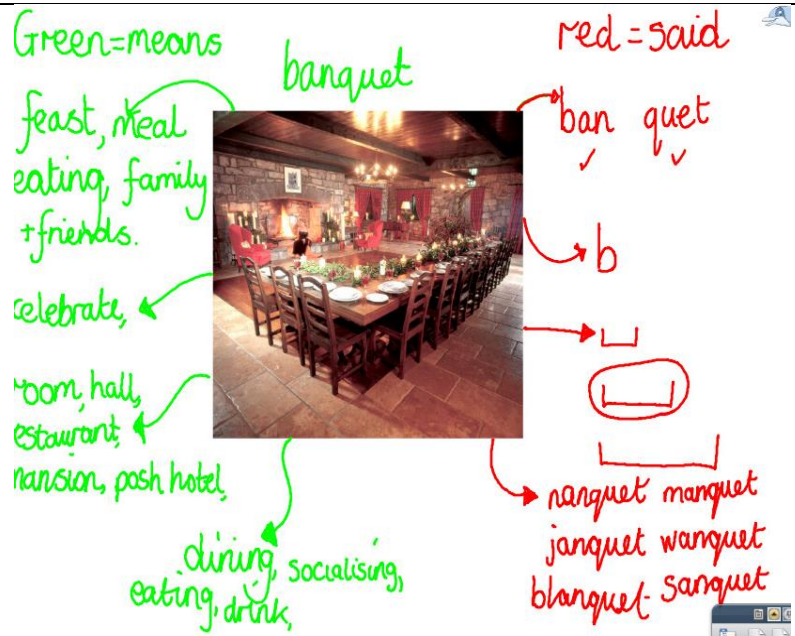 Green=means
banquet
feast, meal
eating, family
+friends.
celebrate,
room, hall,
estaurant,
mansion, posh hotel,
dining, socialising,
eating, drink,
red = said
ban quet
✓ ✓
b
nanquet manquet
janquet wanquet
blanquet- sanquet